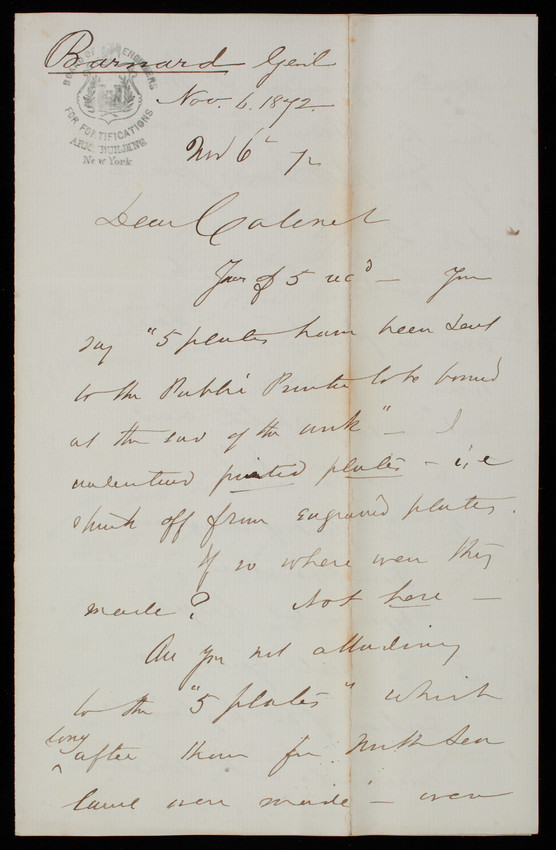 Barnard Genl
Nov. 6. 1872.
BOARD OF ENGINEERS
FOR FORTIFICATIONS
ARMY BUILDING
New York
Nov 6 72
Dear Colonel
Your of 5 recd — You
say "5 plates have been sent
to the Public Printer to be bound
at the end of the work" — I
understand printed plates — i,e
struck off from engraved plates.
If so where were they
made? Not here —
Are you not alluding
to the "5 plates" which
long
after those for North Sea
Canal were made — were